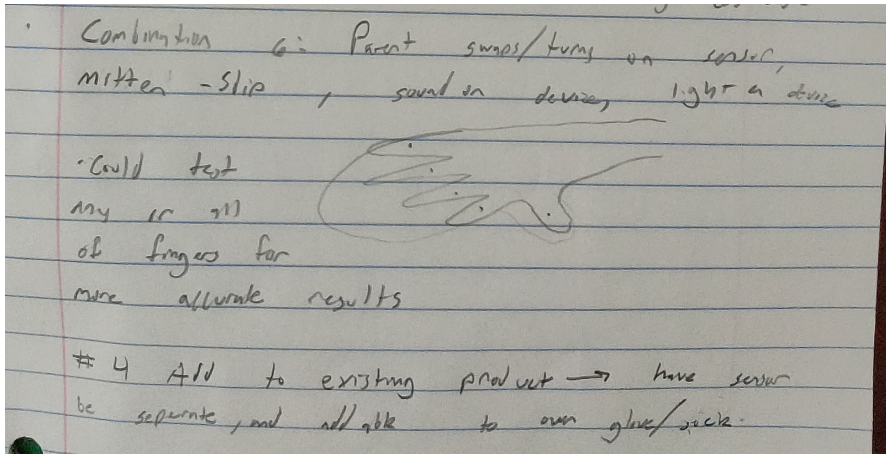 Combination 6: Parent swaps/turns on sensor,
mitten - slip, sound on device, light on device
· Could test
any or all
of fingers for
more accurate results
# 4 Add to existing product → have sensor
be seperate, and addable to own glove/sock.